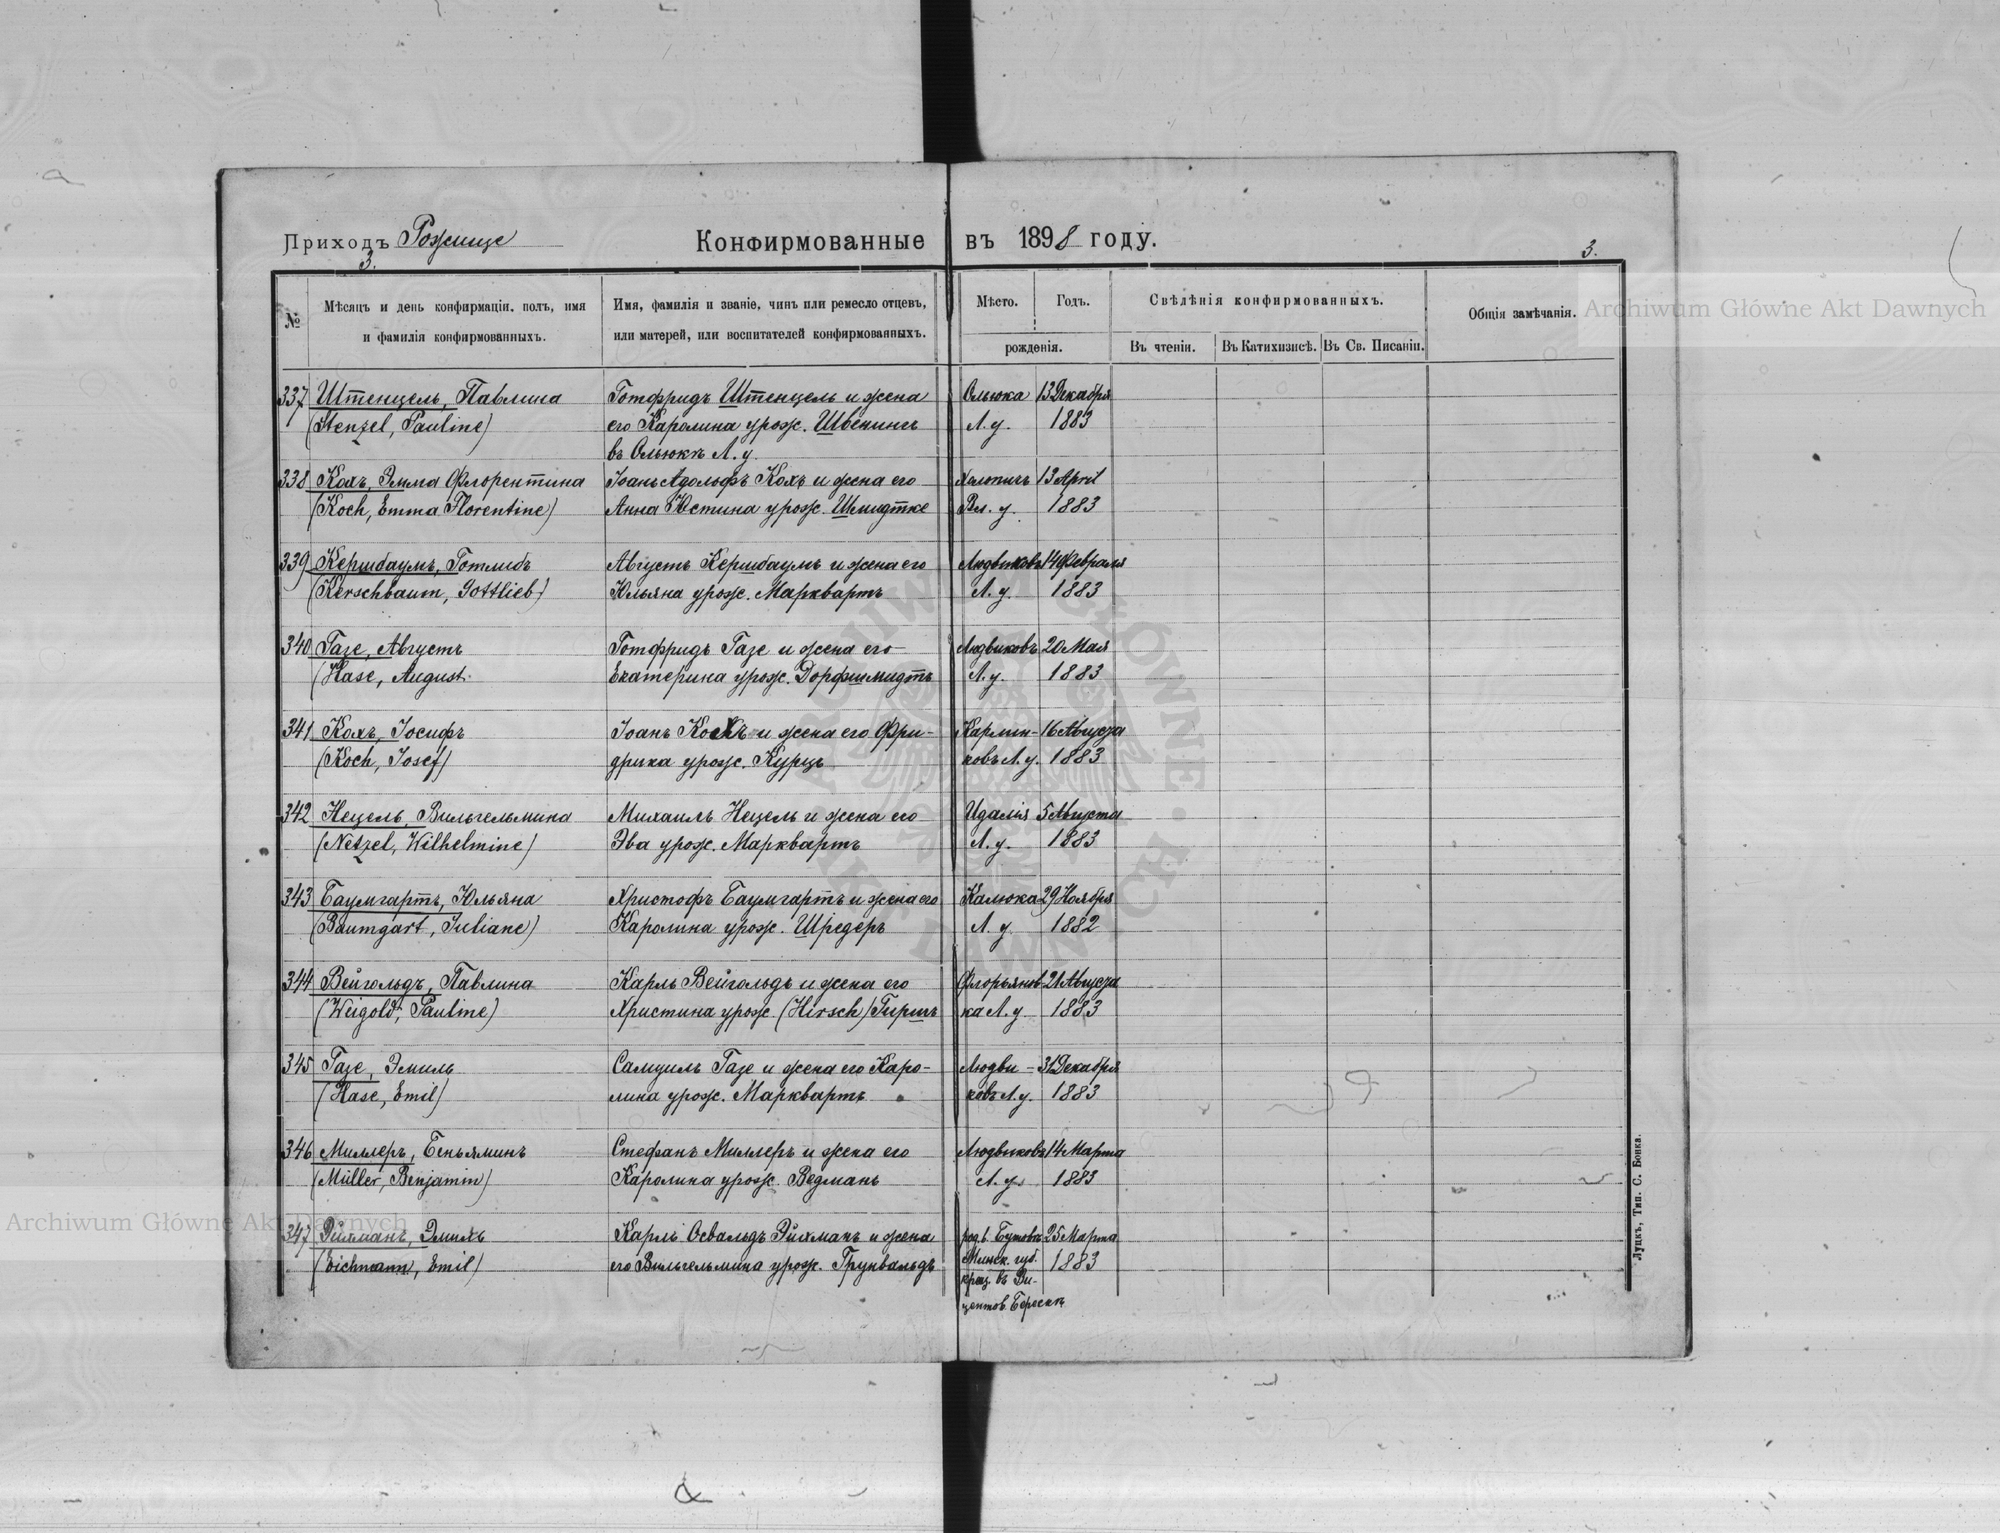 Приходъ Рожище
Конфирмованные въ 1898 году.
3.
3.
№
Мѣсяцъ и день конфирмаціи, полъ, имя
и фамилія конфирмованныхъ.
Имя, фамилія и званіе, чинъ или ремесло отцевъ,
или матерей, или воспитателей конфирмованныхъ.
Мѣсто.
Годъ.
рожденія.
Свѣдѣнія конфирмованныхъ.
Въ чтеніи.
Въ Катихизисѣ.
Въ Св. Писаніи.
Общія замѣчанія.
337 Штенцель, Павлина Готфридъ Штенцель и жена Олыока 13 Декабря
(Stenzel, Pauline) его Каролина урож. Швенингъ Л. у. 1883
въ Олыокѣ Л. у.
338 Кохъ, Эмма Флорентина Іоанъ Адольфъ Кохъ и жена его 13 April
(Koch, Emma Florentine) Анна Юстина урож. Шмидтке Вл. у. 1883
339 Кершбаумъ, Готлибъ Августъ Кершбаумъ и жена его Людвиковъ 14 Февраля
(Kerschbaum, Gottlieb) Юльяна урож. Марквартъ Л. у. 1883
340 Газе, Августъ Готфридъ Газе и жена его Людвиковъ 20 Мая
(Hase, August. Екатерина урож. Дорфшмидтъ Л. у. 1883
341 Кохъ, Іосифъ Іоанъ Кохъ и жена его Фри- Карлин- 16 Августа
(Koch, Josef) дрика урож. Курцъ ковъ Л. у. 1883
342 Нецель, Вильгельмина Михаилъ Нецель и жена его Идалія 5 Августа
(Netzel, Wilhelmine) Эва урож. Марквартъ Л. у. 1883
343 Баумгартъ, Юльяна Христофъ Баумгартъ и жена его Калюка 29 Ноября
(Baumgart, Juliane) Каролина урож. Шредеръ Л. у. 1882
344 Вейгольдъ, Павлина Карлъ Вейгольдъ и жена его Флорьянов- 21 Августа
(Weigold, Pauline) Христина урож. (Hirsch) Гиршъ ка Л. у. 1883
345 Газе, Эмиль Самуилъ Газе и жена его Каро- Людви- 31 Декабря
(Hase, Emil) лина урож. Марквартъ ковъ Л. у. 1883
346 Миллеръ, Беньяминъ Стефанъ Миллеръ и жена его Людвиковъ 14 Марта
(Müller, Benjamin) Каролина урож. Ведманъ Л. у. 1883
347 Эйхманъ, Эмиль Карлъ Освальдъ Эйхманъ и жена род. в. 25 Марта
(Eichmann, Emil) его Вильгельмина урож. Грунвальдъ Минск. губ. 1883
крещ. въ Ви-
центов.
Луцкъ, Тип. С. Бонка.
Archiwum Główne Akt Dawnych
Archiwum Główne Akt Dawnych
ARCHIWUM GŁÓWNE AKT DAWNYCH